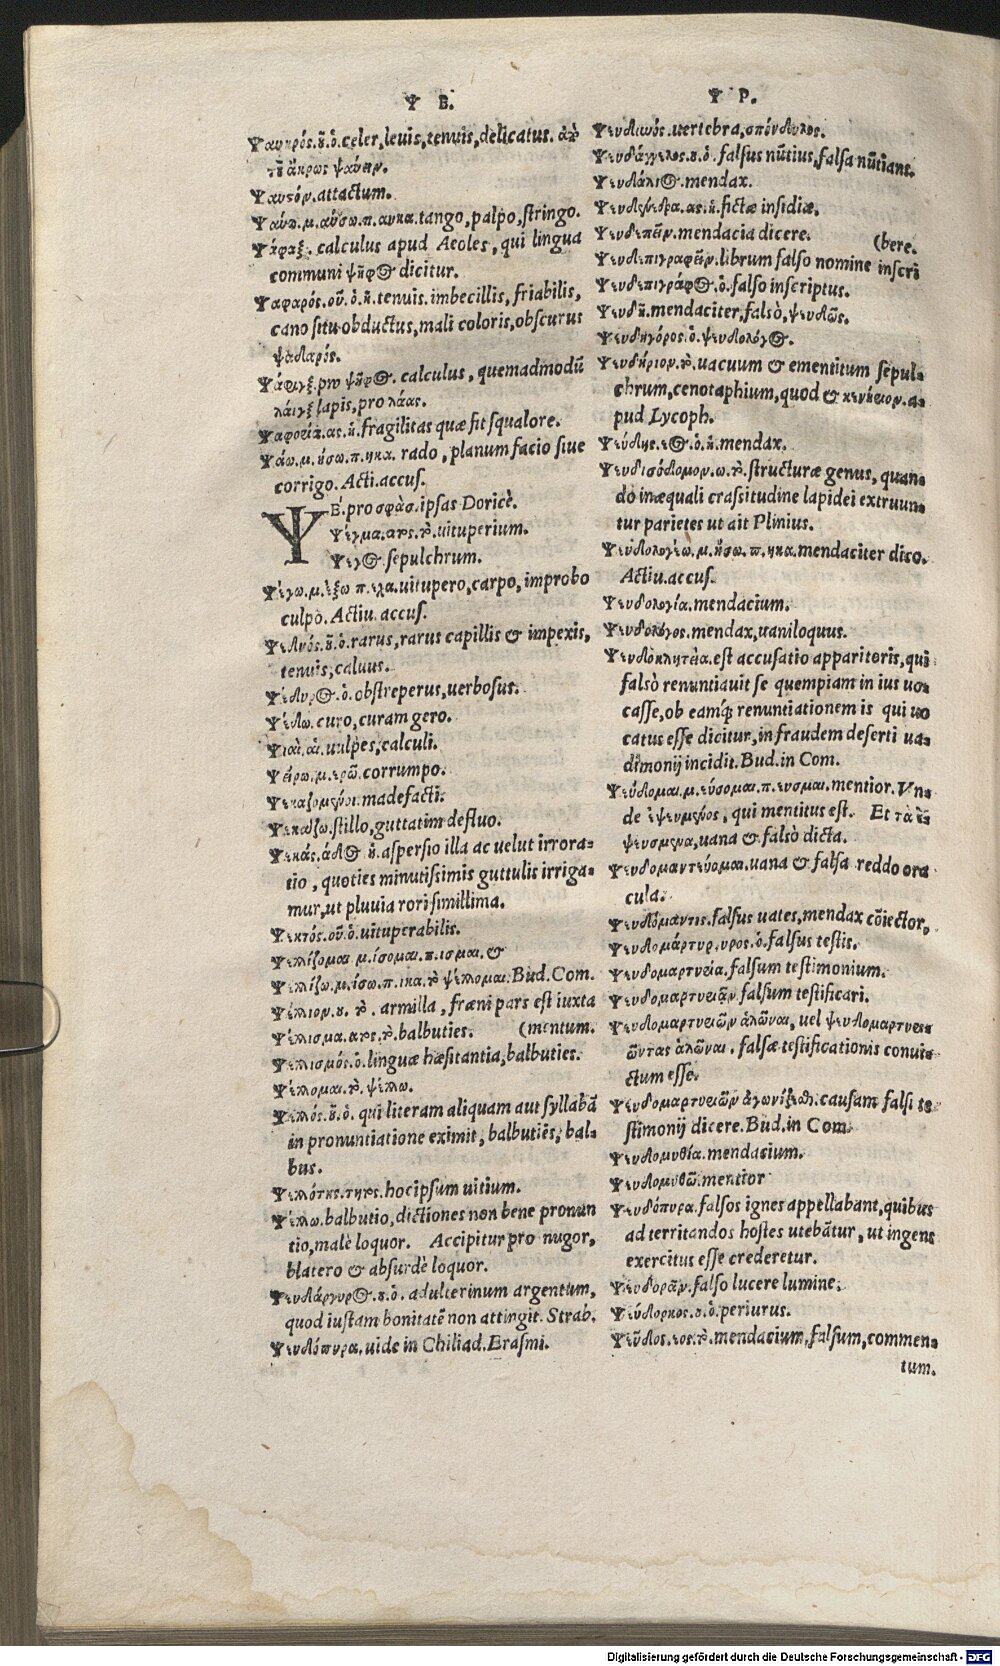 Ψ Ε.
Ψαυκρός.οῦ.ὁ.celer,leuis,tenuis,delicatus. ἀπὸ
τοῦ ἄκρως ψαύειν.
Ψαυστόν.attactum.
Ψαύω.μ.αύσω.π.αυκα.tango,palpo,stringo.
Ψάφαξ. calculus apud Aeoles, qui lingua
communi ψῆφος dicitur.
Ψαφαρός.οῦ.ὁ.ἡ.tenuis.imbecillis, friabilis,
cano situ obductus,mali coloris,obscurus
ψαδαρός.
Ψάφιγξ.pro ψῆφος. calculus, quemadmodū
λάιγξ lapis,pro λάας.
Ψαφορία.ας.ἡ.fragilitas quæ fit squalore.
Ψάω.μ.ήσω.π.ηκα. rado, planum facio siue
corrigo.Acti.accus.
ΨΕ.pro σφὰς.ipsas Doricè.
Ψέγμα.ατος.τὸ.uituperium.
Ψέγος sepulchrum.
Ψέγω.μ.έξω π.εχα.uitupero,carpo,improbo
culpo.Actiu.accus.
Ψεδνός.οῦ.ὁ.rarus,rarus capillis & impexis,
tenuis,caluus.
Ψέδυρος.ὁ.obstreperus,uerbosus.
Ψέδω.curo,curam gero.
Ψιαὶ.αἱ.uulpes,calculi.
Ψείρω.μ.ερῶ.corrumpo.
Ψεκαζομένοι.madefacti.
Ψεκάζω.stillo,guttatim defluo.
Ψεκάς.άδος ἡ.aspersio illa ac uelut irrora-
tio, quoties minutissimis guttulis irriga-
mur,ut pluuia rori simillima.
Ψεκτός.οῦ.ὁ.uituperabilis.
Ψελλίζομαι.μ.ίσομαι.π.ισμαι.&
Ψελλίζω.μ.ίσω.π.ικα.τὸ ψέλλομαι.Bud.Com.
Ψέλλιον.ου.τὸ. armilla, fræni pars est iuxta
Ψέλλισμα.ατος.τὸ.balbuties. (mentum.
Ψελλισμός.ὁ.linguæ hæsitantia,balbuties.
Ψέλλομαι.τὸ.ψέλλω.
Ψελλός.οῦ.ὁ. qui literam aliquam aut syllabā
in pronuntiatione eximit, balbutiēs, bal-
bus.
Ψελλότης.τητος.hoc ipsum uitium.
Ψέλλω.balbutio,dictiones non bene pronun
tio,malè loquor. Accipitur pro nugor,
blatero & absurdè loquor.
Ψευδάργυρος.ου.ὁ. adulterinum argentum,
quod iustam bonitatē non attingit. Strab.
Ψευδόπυρα.uide in Chiliad.Erasmi.
Ψ Ρ.
Ψευδιωός.uertebra,σπόνδυλος.
Ψευδάγγελος.ου.ὁ. falsus nūtius,falsa nūtians.
Ψευδάλιος.mendax.
Ψευδενέδρα.ας.ἡ.fictæ insidiæ.
Ψευδεπεῖν.mendacia dicere. (bere.
Ψευδεπιγραφεῖν.librum falso nomine inscri
Ψευδεπιγράφος.ὁ.falso inscriptus.
Ψευδῆ.mendaciter,falsò,ψευδῶς.
Ψευδηγόρος.ὁ.ψευδολόγος.
Ψευδήριον.τὸ.uacuum & ementitum sepul-
chrum,cenotaphium,quod & κενήριον.a-
pud Lycoph.
Ψεύδης.εος.ὁ.ἡ.mendax.
Ψευδισόδομον.ω.τὸ.structuræ genus, quan-
do inæquali crassitudine lapidei extruun-
tur parietes ut ait Plinius.
Ψευδολογέω.μ.ήσω.π.ηκα.mendaciter dico.
Actiu.accus.
Ψευδολογία.mendacium.
Ψευδολόγος.mendax,uaniloquus.
Ψευδοκλητεία.est accusatio apparitoris,qui
falsò renuntiauit se quempiam in ius uo-
casse,ob eamq́; renuntiationem is qui uo
catus esse dicitur,in fraudem deserti ua-
dimonij incidit.Bud.in Com.
Ψεύδομαι.μ.εύσομαι.π.ευσμαι.mentior.Vn-
de ἐψευμένος, qui mentitus est. Et τὰ ἐ-
ψευσμένα,uana & falsò dicta.
Ψευδομαντεύομαι.uana & falsa reddo ora
cula.
Ψευδόμαντις.falsus uates,mendax cōiector,
Ψευδομάρτυρ,υρος.ὁ.falsus testis.
Ψευδομαρτυρία.falsum testimonium.
Ψευδομαρτυρεῖν falsum testificari.
Ψευδομαρτυριῶν ἁλῶναι, uel ψευδομαρτυρι-
ῶντας ἁλῶναι. falsæ testificationis conui-
ctum esse.
Ψευδομαρτυριῶν ἀγωνίζεσθαι.causam falsi te-
stimonij dicere.Bud.in Com.
Ψευδομυθία.mendacium.
Ψευδομυθῶ.mentior
Ψευδόπυρα.falsos ignes appellabant,quibus
ad territandos hostes utebātur, ut ingens
exercitus esse crederetur.
Ψευδορᾶν.falso lucere lumine.
Ψεύδορκος.ου.ὁ.periurus.
Ψεῦδος.εος.τὸ.mendacium,falsum,commen-
tum.
Digitalisierung gefördert durch die Deutsche Forschungsgemeinschaft - DFG